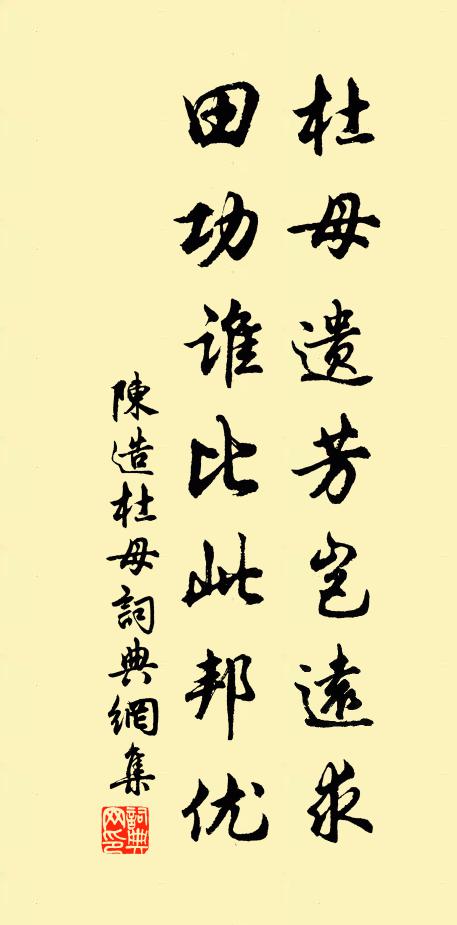 杜母遗芳岂远求
田功谁比此邦优
陳造杜母詞典網集
詞典网印